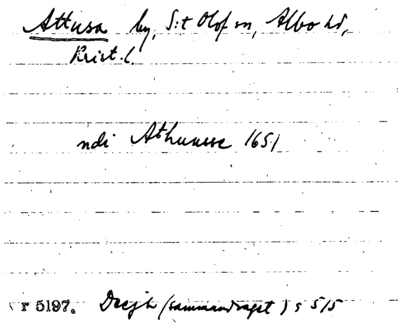 Attusa by, S:t Olof sn, Albo hd,
Krist. l
ndi Athuusse 1651
r 5197. Dsejh (sammandraget) s 515